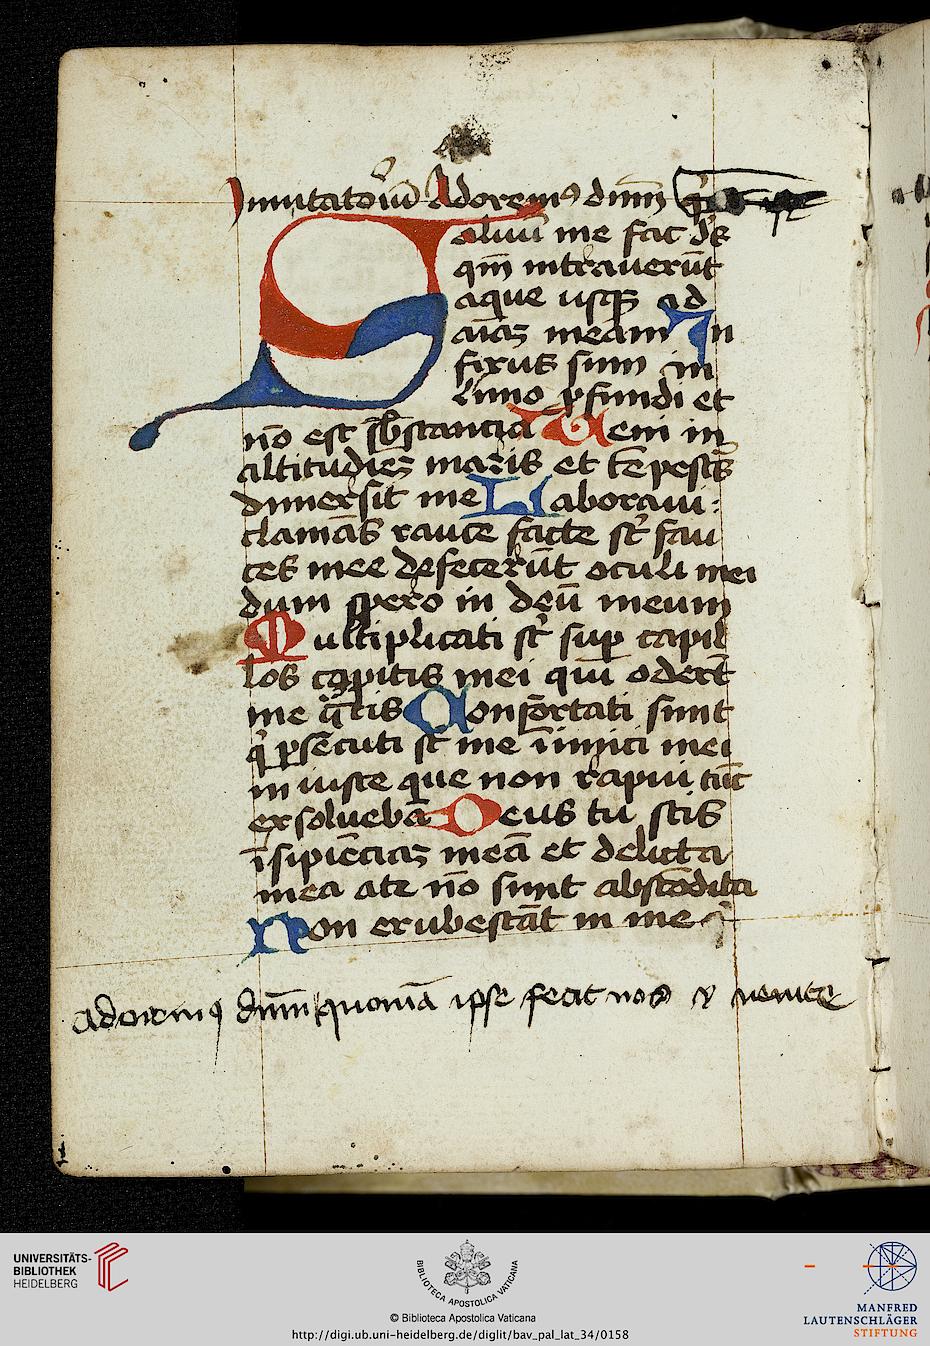 Inuitatoriū Adoremus dnm̄ qm̄
Saluū me fac ds̄
qm̄ intrauerūt
aque usq̨ ad
aīaꝫ meam In
fixus sum in
limo ꝓfundi et
nō est sb̄stancia Ueni in
altitudīeꝫ maris et tēpestas
dimersit me Laboraui
clamās rauce facte st̄ fau
ces mee defecerūt oculi mei
dum spero in deū meum
Multiplicati st̄ suꝑ capil
los capitis mei qui oderūt
me gͣtis Confortati sunt
qͥ ꝑsecuti st̄ me īimici mei
iniuste que non rapui tūc
exsoluebā Deus tu scis
īsipiēciaꝫ meā et delicta
mea a te nō sunt abscōdita
Non erubescāt in me
adoremꝰ dnm̄ quoniā ipse fecit nos venite
UNIVERSITÄTS-
BIBLIOTHEK
HEIDELBERG
BIBLIOTECA APOSTOLICA VATICANA
© Biblioteca Apostolica Vaticana
http://digi.ub.uni-heidelberg.de/diglit/bav_pal_lat_34/0158
MANFRED
LAUTENSCHLÄGER
STIFTUNG